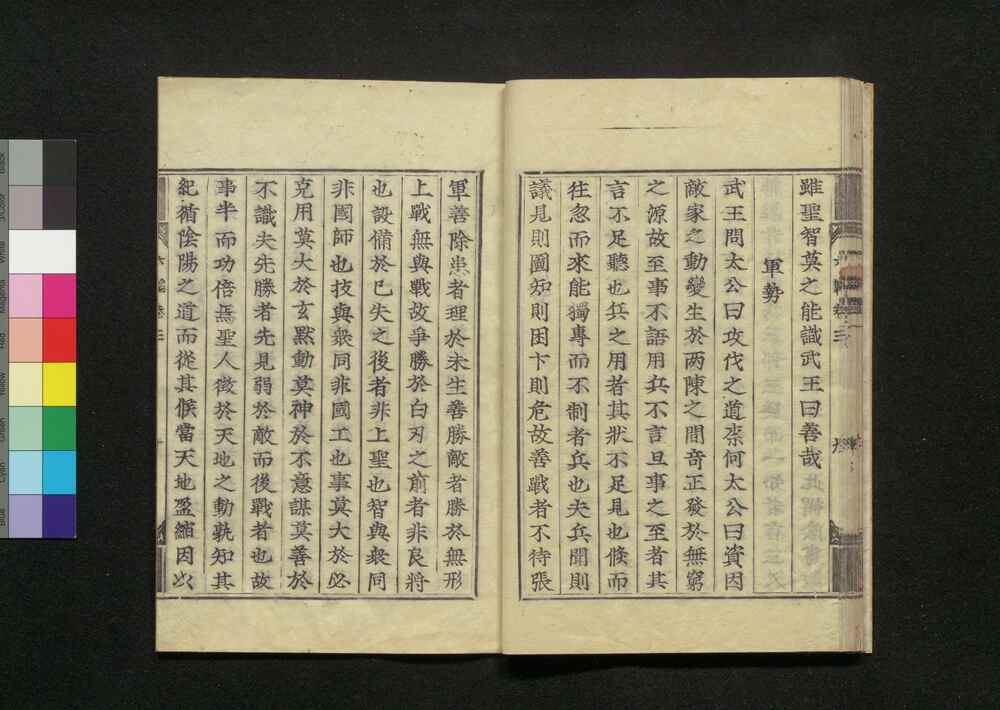 雖聖智莫之能識武王曰善哉
軍勢
武王問太公曰攻伐之道柰何太公曰資因
敵家之動變生於两陳之間奇正發於無窮
之源故至事不語用兵不言且事之至者其
言不足聽也兵之用者其狀不足見也倏而
往忽而來能獨專而不制者兵也夫兵聞則
議見則圖知則困卞則危故善戰者不待張
軍善除患者理於未生善勝敵者勝於無形
上戰無與戰故爭勝於白刃之前者非良將
也設備於已失之後者非上聖也智與衆同
非國師也技與衆同非國工也事莫大於必
克用莫大於玄默動莫神於不意謀莫善於
不識夫先勝者先見弱於敵而後戰者也故
事半而功倍焉聖人徵於天地之動孰知其
紀循陰陽之道而從其候當天地盈縮因以
六韜卷三
Black
3/Color
White
Magenta
Red
Yellow
Green
Cyan
Blue